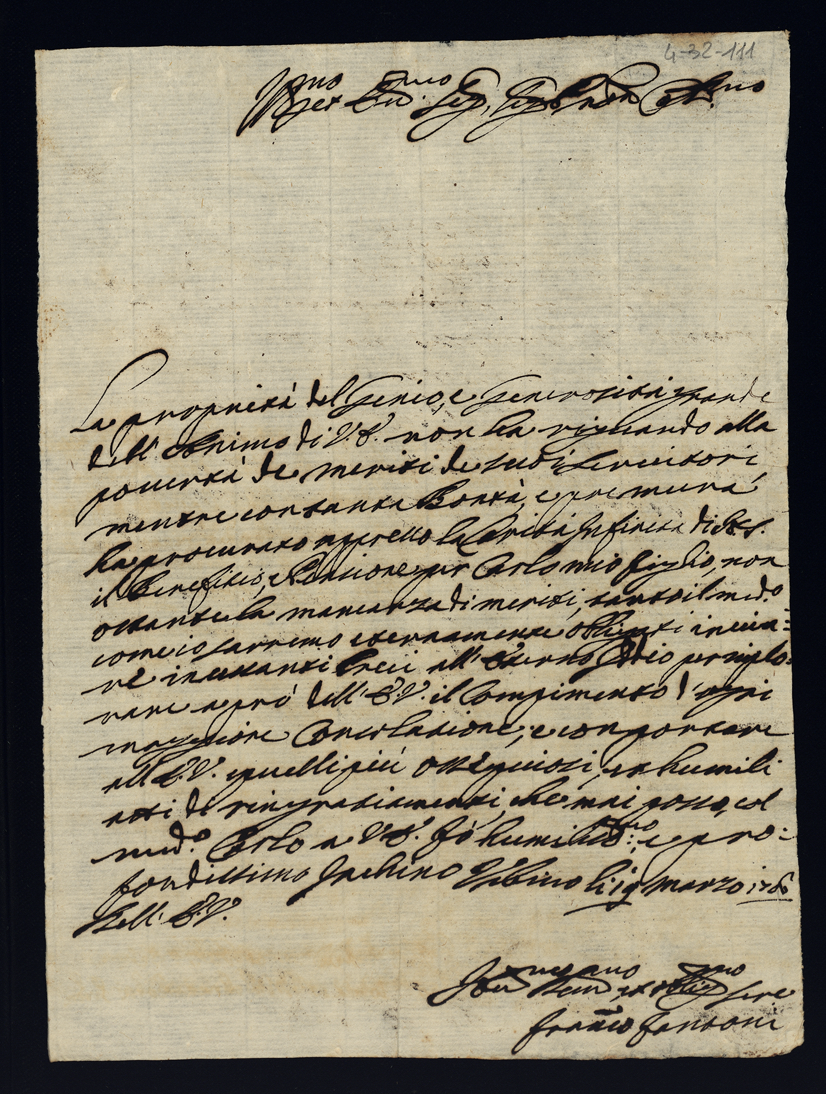 4-32-111
Ill.mo et Ecc.mo Sig. Sig. Pron Col.mo
La propietà del Genio, e Generosità grande
dell'Animo di V.E. non ha riguardo alla
povertà de meriti de suoi servitori
mentre con tanta Bontà, e premura
ha procurato appresso la Carità infinita di
il Beneficio, e Pensione per Carlo mio figlio, non
ostante la mancanza di meriti, tanto il med.o
come io saremo eternamente obligati inviа=
re incessanti Preci all'Eterno Iddio per implo=
rare a pró dell'E.V. il Compimento d'ogni
maggiore Consolazione, e con portare
all'E.V. quelli piú ossequiosi, et humili
atti di ringratiamenti, che mai posso, col
med.o Carlo a V.E. fò humiliss.mo, e pro=
fondissimo Inchino Urbino li 19 marzo
Dell'E.V.
Hum.mo et oblig.mo serv
Fran.co Fantoni